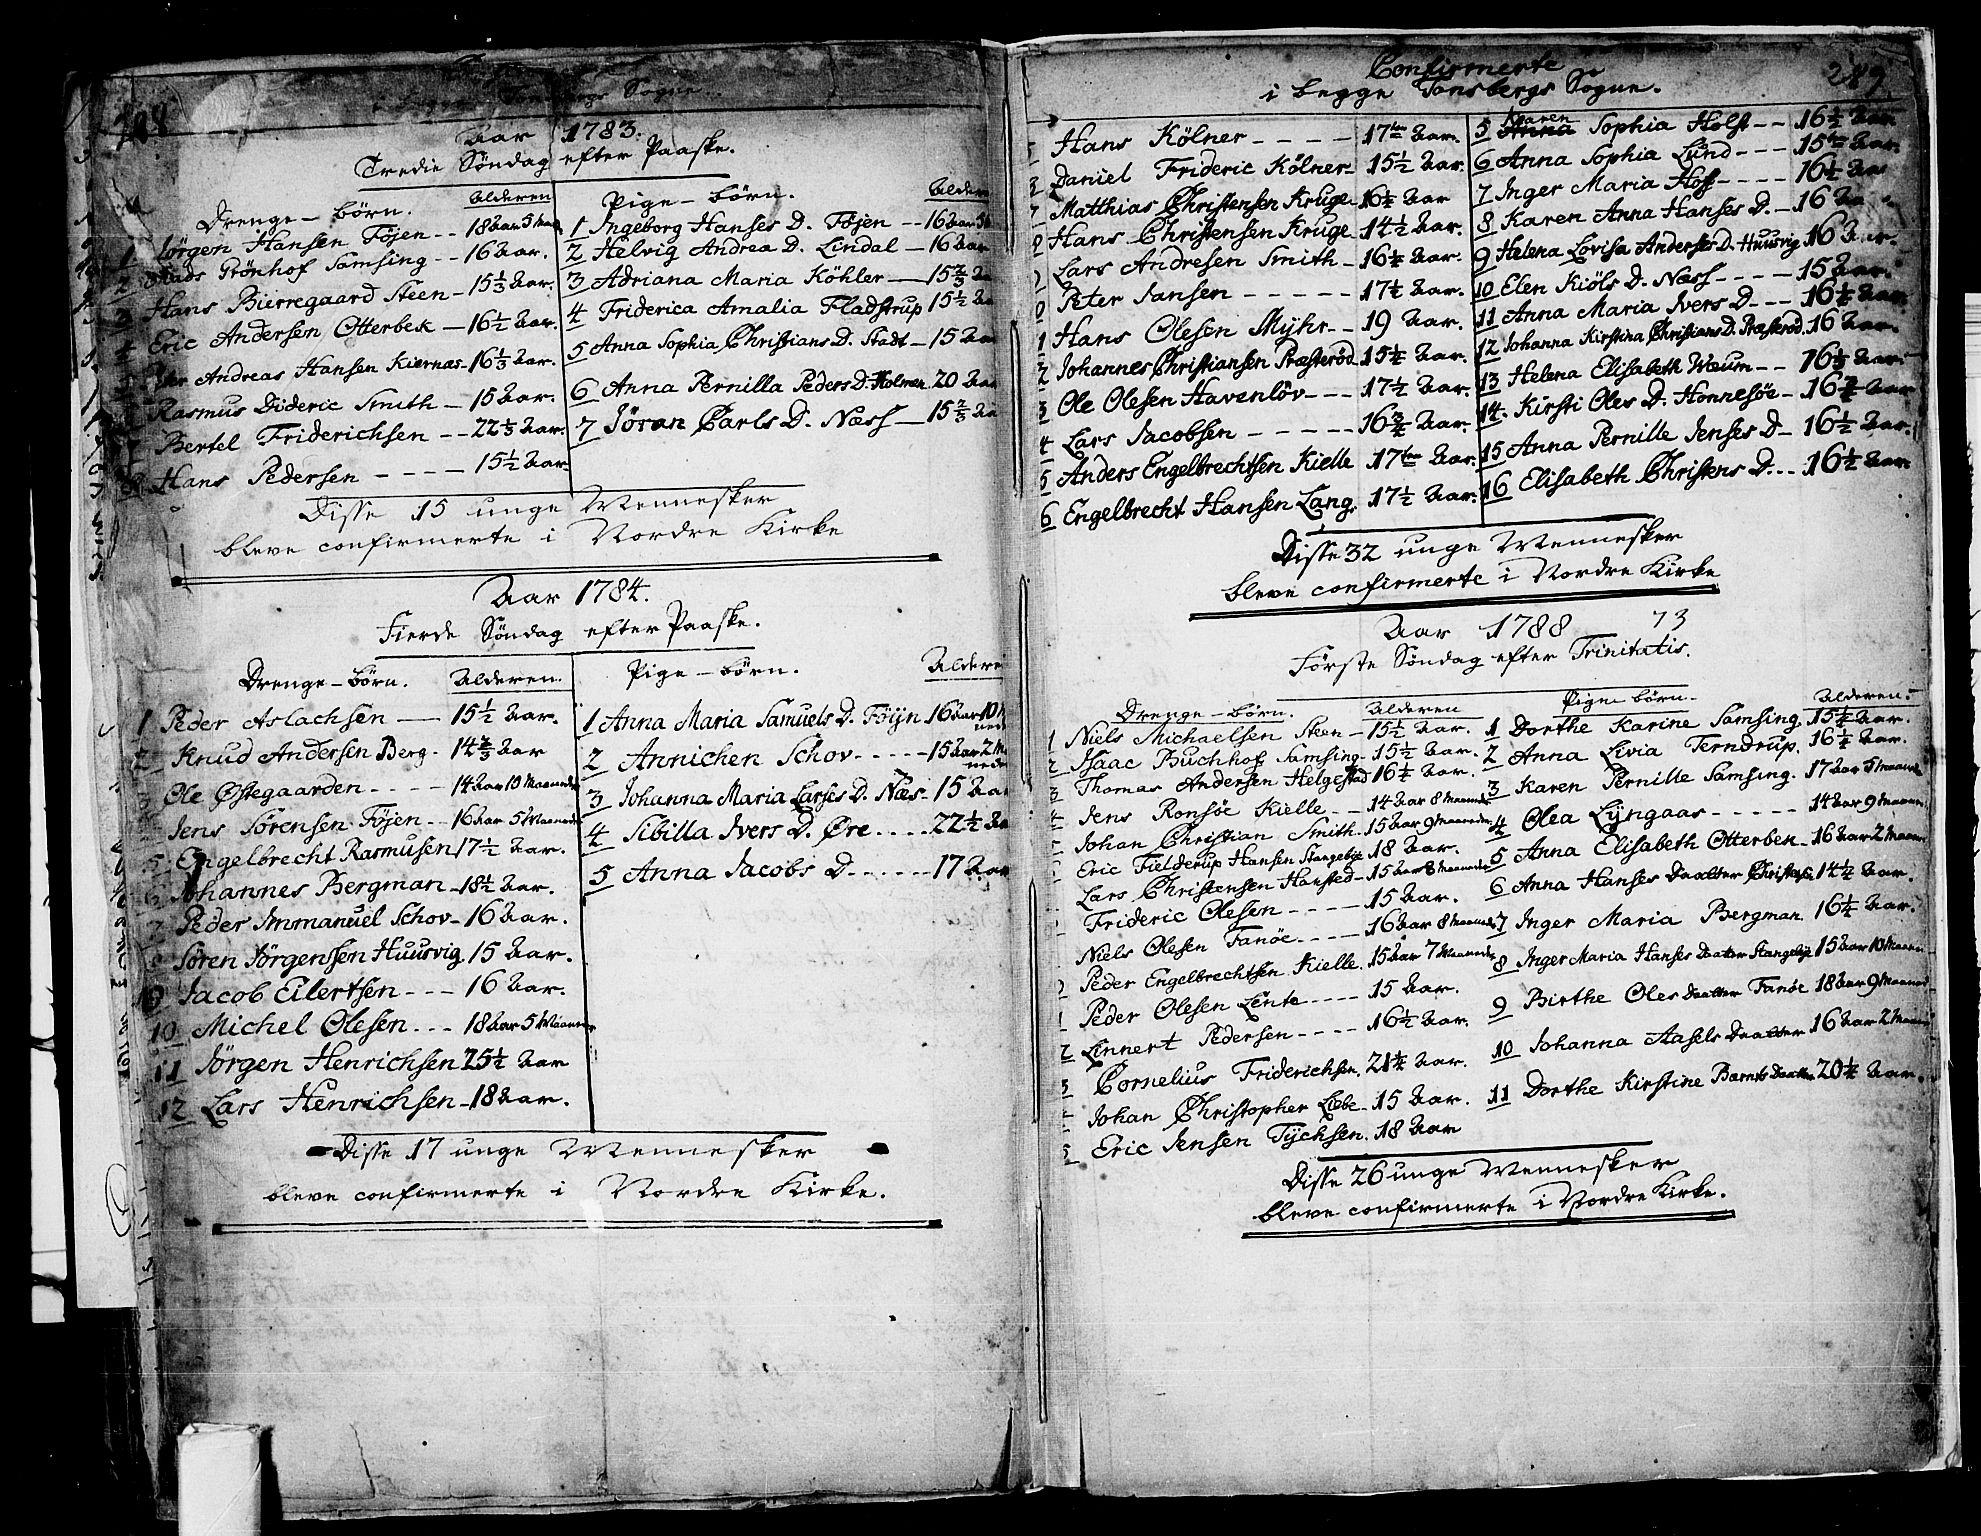 288
i begge Tonsbergs Sogne.
Aar 1783.
Tredie Søndag efter Paaske.
Drenge-børn. Alderen
1 Jørgen Hansen Föjen -- 18 Aar 5 Maan
2 Mads Grönhof Samsing -- 16 Aar.
3 Hans Bierregaard Steen - 15 1/3 Aar.
4 Eric Andersen Otterbek -- 16 1/2 Aar.
Andreas Hansen Kiernæs - 16 1/3 Aar.
Rasmus Dideric Smith - 15 Aar.
7 Bertel Friderichsen -- 22 1/3 Aar.
8 Hans Pedersen ---- 15 1/2 Aar
Pige-børn. Alderen
1 Ingeborg Hanses D. Föjen -- 16 Aar 5
2 Helvig Andrea D. Lindal - 16 Aar
3 Adriana Maria Köhler -- 15 2/3 Aa
4 Friderica Amalia Fladstrup 15 1/2 Aa
5 Anna Sophia Christians D. Stadt - 15 Aar
6 Anna Pernilla Peders D. Holmen 20 Aar
7 Jöran Carls D. Næss -- 15 2/3 Aa
Disse 15 unge Mennesker
bleve confirmerte i Nordre Kirke
Aar 1784.
Fierde Søndag efter Paaske.
Drenge-børn. Alderen.
1 Peder Aslachsen -- 15 1/2 Aar.
2 Knud Andersen Berg. 14 2/3 Aar
Ole Østegaarden ---- 14 Aar 10 Maaneder
Jens Sørensen Föjen -- 16 Aar 5 Maaneder
5 Engelbrecht Rasmusen 17 1/2 Aar.
6 Johannes Bergman - 18 1/2 Aar.
7 Peder Immanuel Schov - 16 Aar.
Søren Jørgenssen Huusvig 15 Aar.
9 Jacob Eilertsen --- 16 Aar.
10 Michel Olesen --- 18 Aar 5 Maaneder
11 Jørgen Henrichsen 25 1/2 Aar
12 Lars Henrichsen - 18 Aar.
Pige-børn. Alderen
1 Anna Maria Samuels D. Föijn 16 Aar 10 M
2 Annichen Schov ---- 15 Aar 2 M
3 Johanna Maria Larses D. Næs - 15 Aar
4 Sibilla Ivers D. Øre .... 22 1/2 Aa
5 Anna Jacobs D ----- 17 Aar
Disse 17 unge Mennesker
bleve confirmerte i Nordre Kirke.
Confirmerte 289.
i begge Tonsbergs Sogne.
5 Hans Kölner ---- 17 ten Aar.
Daniel Frideric Kölner - 15 1/2 Aar.
7 Matthias Christensen Kruge 16 1/2 Aar
8 Hans Christensen Kruge 14 1/2 Aar.
9 Lars Andresen Smith - 16 1/4 Aar.
0 Peter Jansen ----- 17 1/4 Aar.
1 Hans Olesen Myhr -- 19 Aar.
2 Johannes Christiansen Præsterød 15 1/4 Aar.
3 Ole Olesen Havenlöv --- 17 1/2 Aar.
4 Lars Jacobsen ----- 16 3/4 Aar.
5 Anders Engelbrechtsen Kielle 17 ten Aar.
6 Engelbrecht Hansen Lang. 17 1/2 Aar.
5 Karen Sophia Holst -- 16 1/2 Aar
6 Anna Sophia Lund --- 15 ten Aar.
7 Inger Maria Hoff ---- 16 1/2 Aar
8 Karen Anna Hanses D. - 16 Aa
9 Helena Lovisa Anderses D. Huusvig 16 Aar.
10 Elen Kiöls D. Næss ---- 15 Aar.
11 Anna Maria Ivers D --- 16 1/2 Aar.
12 Johanna Kirstina Christians D. Præsterød. 16 Aar.
13 Helena Elisabeth Weum -- 16 1/3 Aar.
14. Kirsti Oles D. Honnesøe - 16 3/4 Aar.
15 Anna Pernille Jenses D - 16 1/2 Aar.
16 Elisabeth Christens D ... 16 1/2 Aar.
Disse 32 unge Mennesker
bleve confirmerte i Nordre Kirke
Aar 1788 73
Første Søndag efter Trinitatis.
Drenge-børn. Alderen
1 Niels Michaelsen Steen - 15 1/2 Aar.
2 Isaac Buchhof Samsing - 15 1/2 Aar.
3 Thomas Andersen Helgestad 16 1/4 Aar.
4 Jens Ronsöe Kielle -- 14 Aar 8 Maaneder
Johan Christian Smith. 15 Aar 9 Maaneder
Eric Fielderup Hansen Stangebye 18 Aar.
Lars Christensen Hansted - 15 Aar 8 Maaneder
Frideric Olesen ---- 15 Aar.
Niels Olesen Fanöe ---- 16 Aar 8 Maaneder
Peder Engelbrechtsen Kielle. 15 Aar 7 Maaneder
1 Peder Olesen Lente ---- 15 Aar.
2 Linnert Pedersen ---- 16 1/2 Aar.
3 Cornelius Friderichsen. 21 1/4 Aar.
Johan Christopher Liebe - 15 Aar.
5 Eric Jensen Tychsen. 18 Aar
Pigebørn. Alderen.
1 Dorthe Karine Samsing. 15 1/4 Aar.
2 Anna Livia Terndrup. 16 1/4 Aar.
3 Karen Pernille Samsing. 17 Aar 5 Maaneder
4 Olea Lyngaas ----- 14 Aar 9 Maaneder
5 Anna Elisabeth Otterben - 16 Aar 2 Maaneder
6 Anna Hanses Daatter 14 1/2 Aar.
7 Inger Maria Bergman 16 1/4 Aar.
8 Inger Maria Hanses Daatter Stangebye 15 Aar 10 Maaneder
9 Birthe Oles Daatter Fanöe 18 Aar 9 Maaneder
10 Johanna Aasels Daatter 16 Aar 2 Maaneder
11 Dorthe Kirstine Bærnts Daatter 20 1/4 Aar.
Disse 26 unge Mennesker
bleve confirmerte i Nordre Kirke.